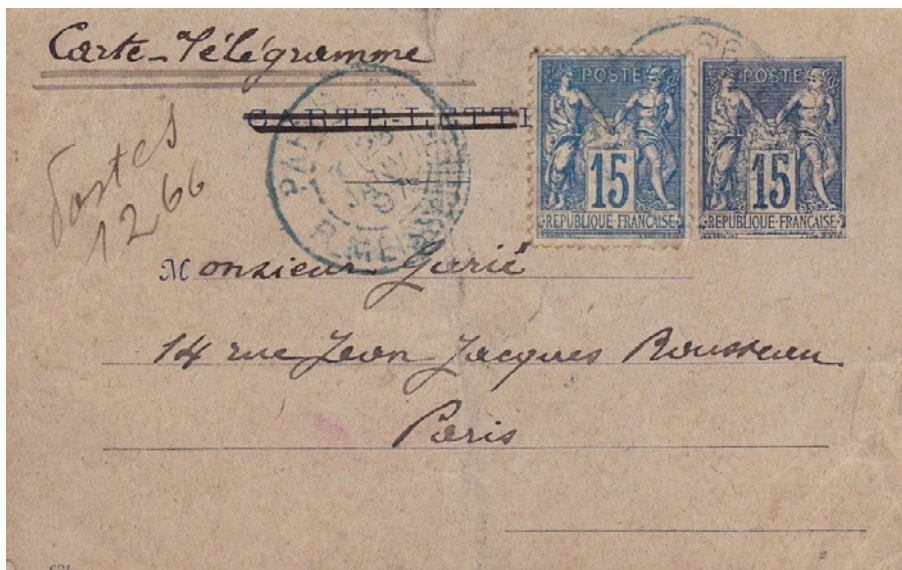 Carte-Télégramme
CARTE-LETT
POSTE
15
REPUBLIQUE FRANÇAISE
POSTE
15
REPUBLIQUE FRANÇAISE
1266
Monsieur Garié
14 rue Jean Jacques Rousseau
Paris